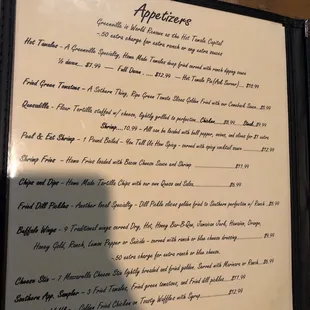 Appetizers
Greenville is World Renown as the Hot Tamale Capital
.50 extra charge for extra ranch or any extra sauces
Hot Tamales - A Greenville Specialty, Home Made Tamales deep fried served with ranch dipping sauce
½ doz... $7.99 — Full Dozen ... $12.99 — Hot Tamale Po
Fried Green Tomatoes - A Southern Thing, Ripe Green Tomato Slices Golden Fried with our Comeback Sauce..
Quesadilla - Flour Tortilla stuffed w/ cheese, lightly grilled to perfection..
Shrimp... 10.99 - All can be loaded with bell pepper, onions, and olives for $1 extra
Peel & Eat Shrimp - 1 Pound Boiled - You Tell Us How Spicy - served with spicy cocktail sauce
Shrimp Fries - Home Fries loaded with Bacon Cheese Sauce and Shrimp $11.99
Chips and Dips - Home Made Tortilla Chips with our own Queso and Salsa
Fried Dill Pickles - Another local Specialty - Dill Pickle slices golden fried to Southern perfection w/ Ranch
Buffalo Wings - 9 Traditional wings served Dry, Hot, Honey Bar-B-Que, Jamaican Jerk, Hawaiian, Orange,
Honey Gold, Ranch, Lemon Pepper or Suicide - served with ranch or blue cheese dressing
.50 extra charge for extra ranch or blue cheese.
Cheese Stix - 7 Mozzarella Cheese Stix lightly breaded and fried golden. Served with Marinara or Ranch
Southern App. Sampler - 3 Fried Tamales, Fried green tomatoes, and Fried dill pickles $11.99
Golden Fried Chicken on Toasty Waffles with Syrup $12.99